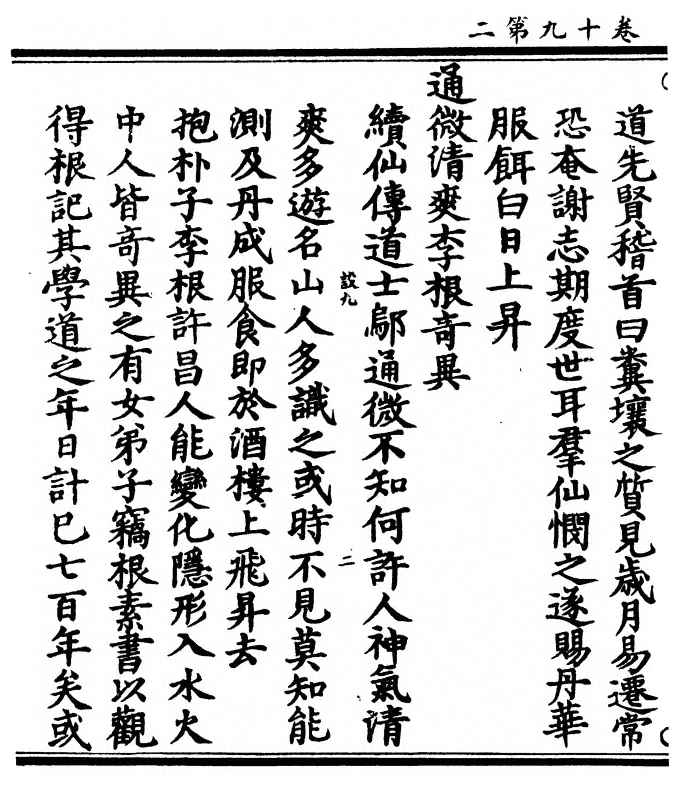 卷十九第二
道先賢稽首曰糞壤之質見歲月易遷常
恐奄謝志期度世耳羣仙憫之遂賜丹華
服餌白日上昇
通微清爽李根奇異
續仙傳道士鄔通微不知何許人神氣清
設九
二
爽多遊名山人多識之或時不見莫知能
測及丹成服食即於酒樓上飛昇去
抱朴子李根許昌人能變化隱形入水火
中人皆奇異之有女弟子竊根素書以觀
得根記其學道之年日計巳七百年矣或